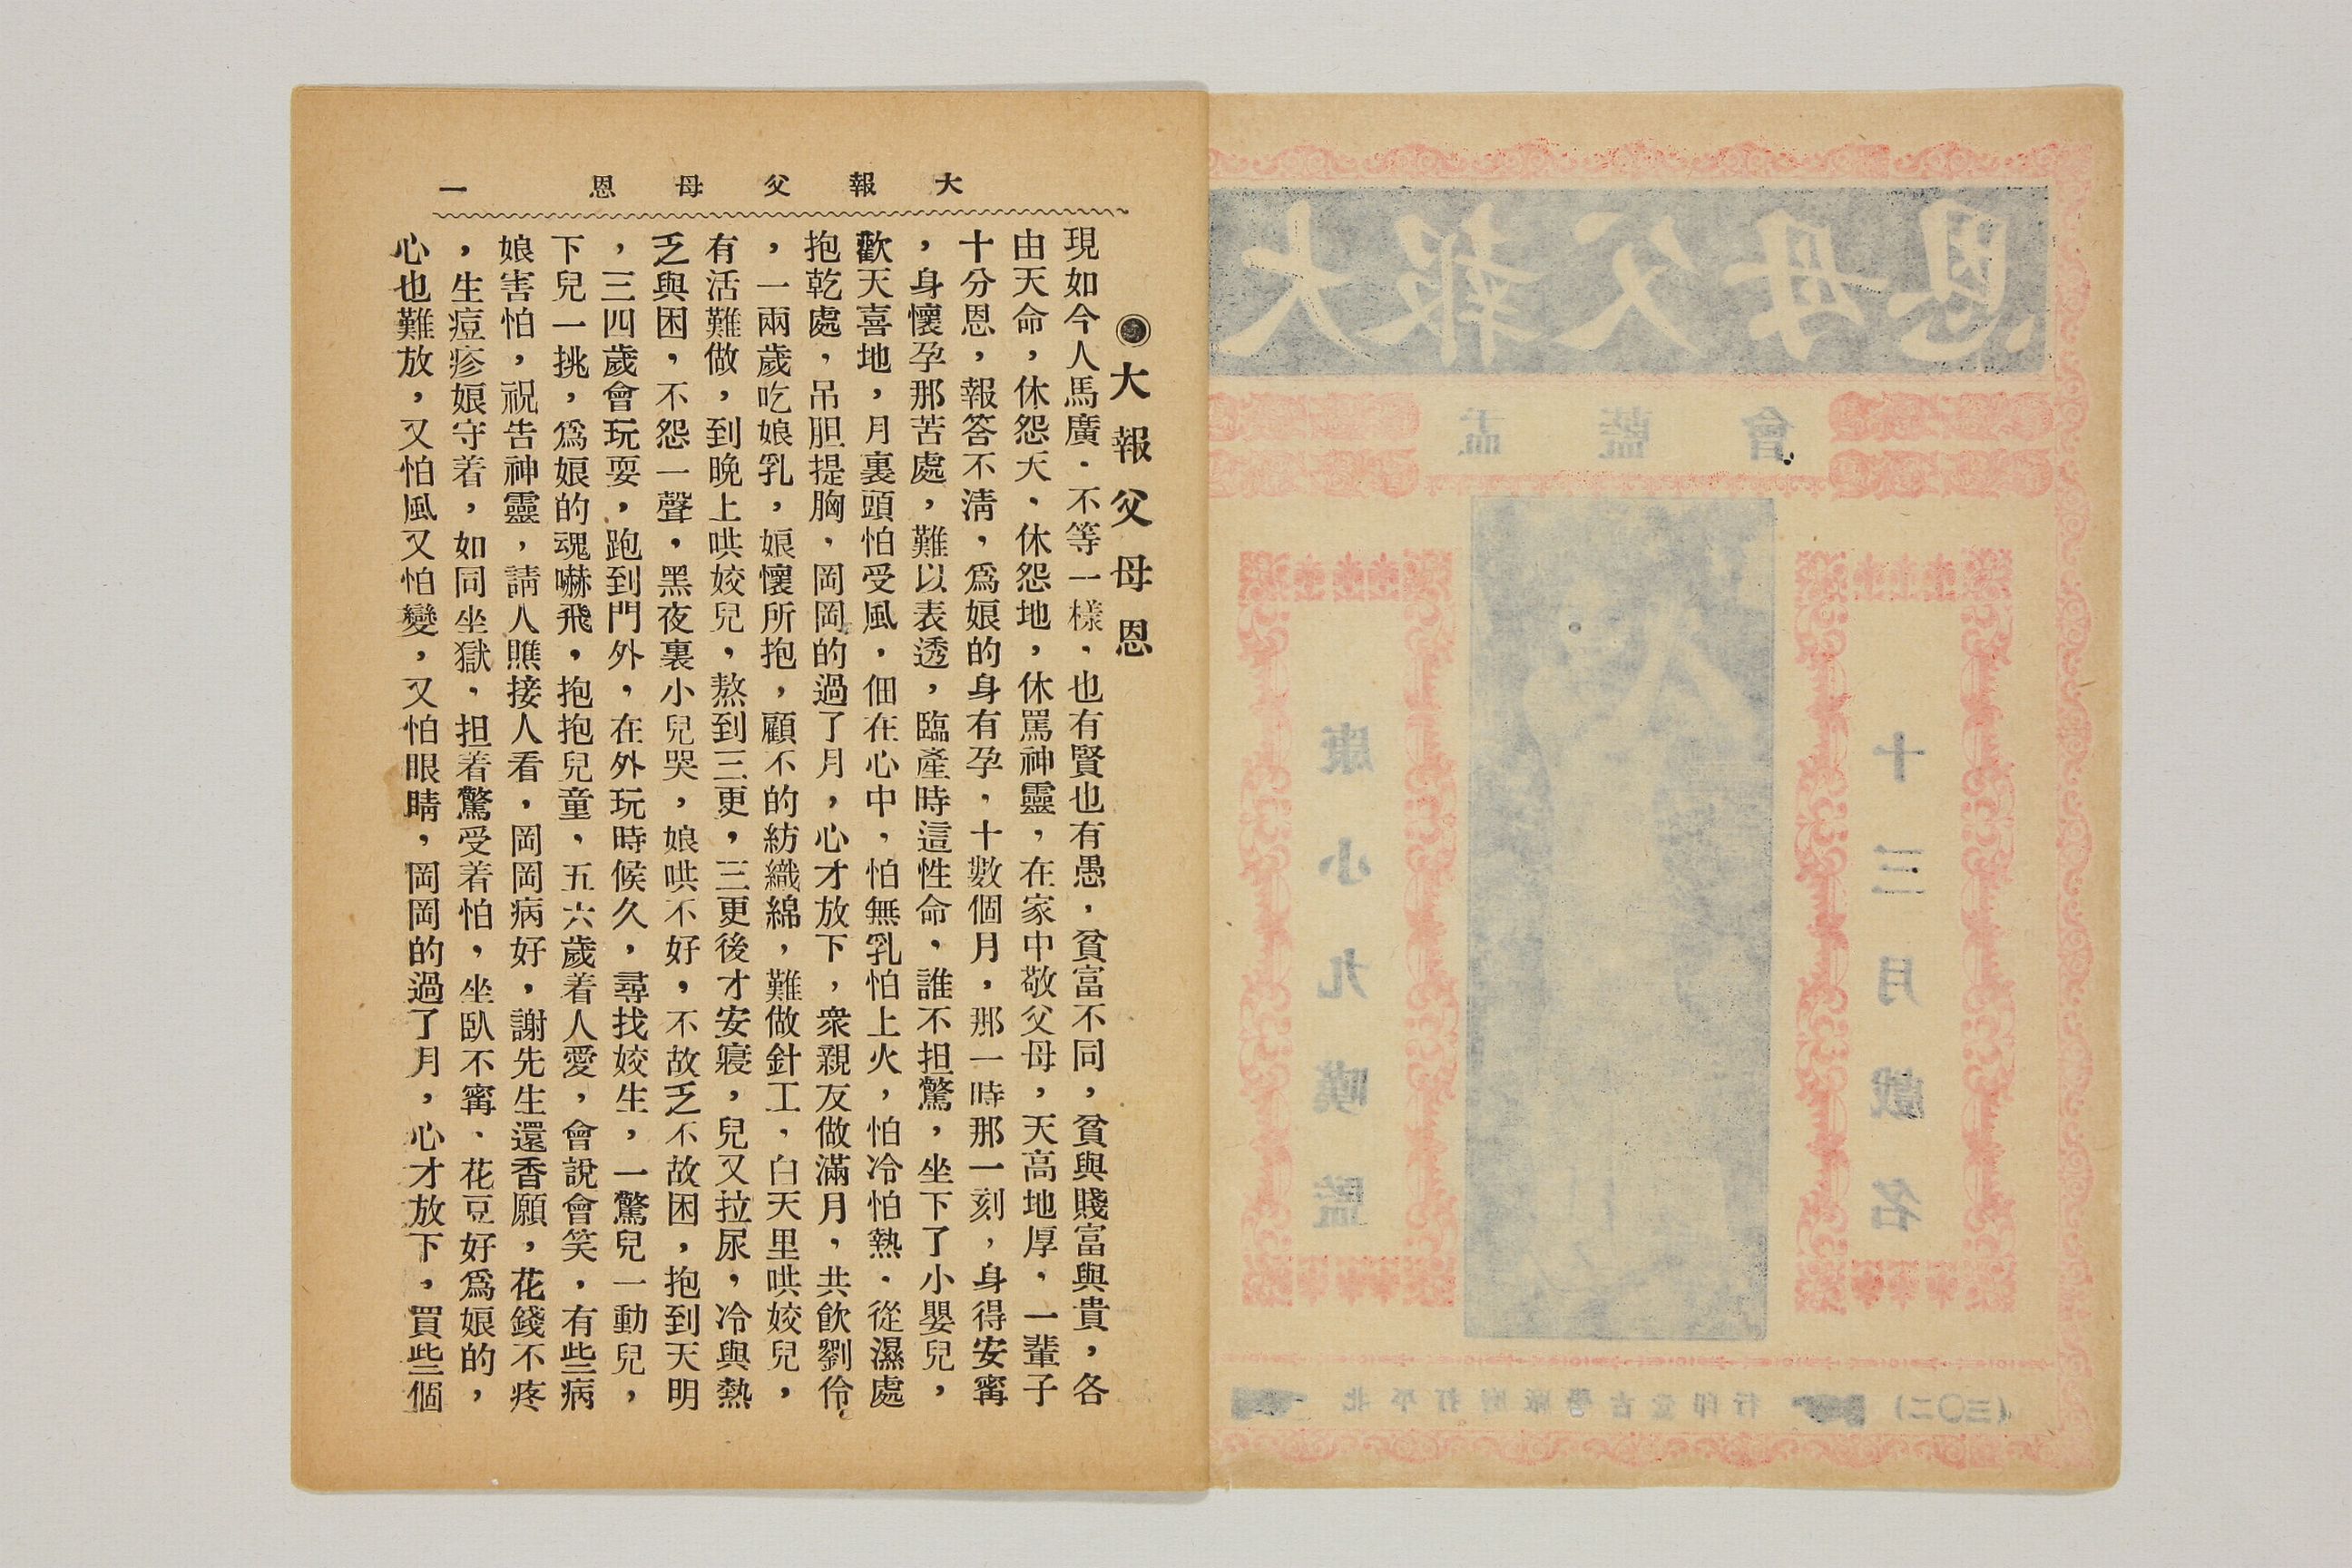 大報父母恩 一
◉大報父母恩
現如今人馬廣．不等一樣，也有賢也有愚，貧富不同，貧與賤富與貴，各
由天命，休怨天、休怨地，休罵神靈，在家中敬父母，天高地厚，一輩子
十分恩，報答不淸，爲娘的身有孕，十數個月，那一時那一刻，身得安寗
，身懷孕那苦處，難以表透，臨產時這性命，誰不担驚，坐下了小嬰兒，
歡天喜地，月裏頭怕受風，佃在心中，怕無乳怕上火，怕冷怕熱．從濕處
抱乾處，吊胆提胸，岡岡的過了月，心才放下，衆親友做滿月，共飲劉伶
，一兩歲吃娘乳，娘懷所抱，顧不的紡織綿，難做針工，白天里哄姣兒，
有活難做，到晚上哄姣兒，熬到三更，三更後才安寢，兒又拉尿，冷與熱
乏與困，不怨一聲，黑夜裏小兒哭，娘哄不好，不故乏不故困，抱到天明
，三四歲會玩耍，跑到門外，在外玩時候久，尋找姣生，一驚兒一動兒，
下兒一挑，爲娘的魂嚇飛，抱抱兒童，五六歲着人愛，會說會笑，有些病
娘害怕，祝告神靈，請人瞧接人看，岡岡病好，謝先生還香願，花錢不疼
，生痘疹娘守着，如同坐獄，担着驚受着怕，坐臥不寗、花豆好爲娘的，
心也難放，又怕風又怕變，又怕眼睛，岡岡的過了月，心才放下，買些個
大報父母恩
會藍盂
十三月戲名
康小九嘆監
(三〇二)
行印堂古學廠磨打平北